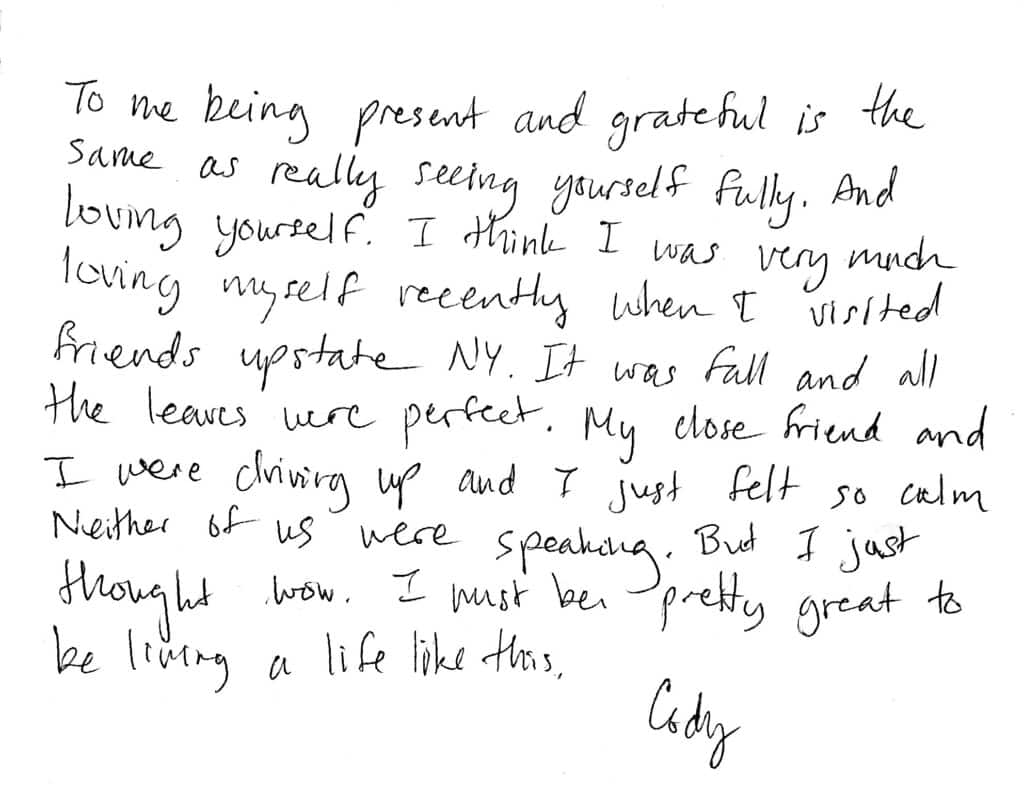 To me being present and grateful is the
same as really seeing yourself fully. And
loving yourself. I think I was very much
loving myself recently when I visited
friends upstate NY. It was fall and all
the leaves were perfect. My close friend and
I were driving up and I just felt so calm
Neither of us were speaking. But I just
thought wow. I must be pretty great to
be living a life like this.
Cody